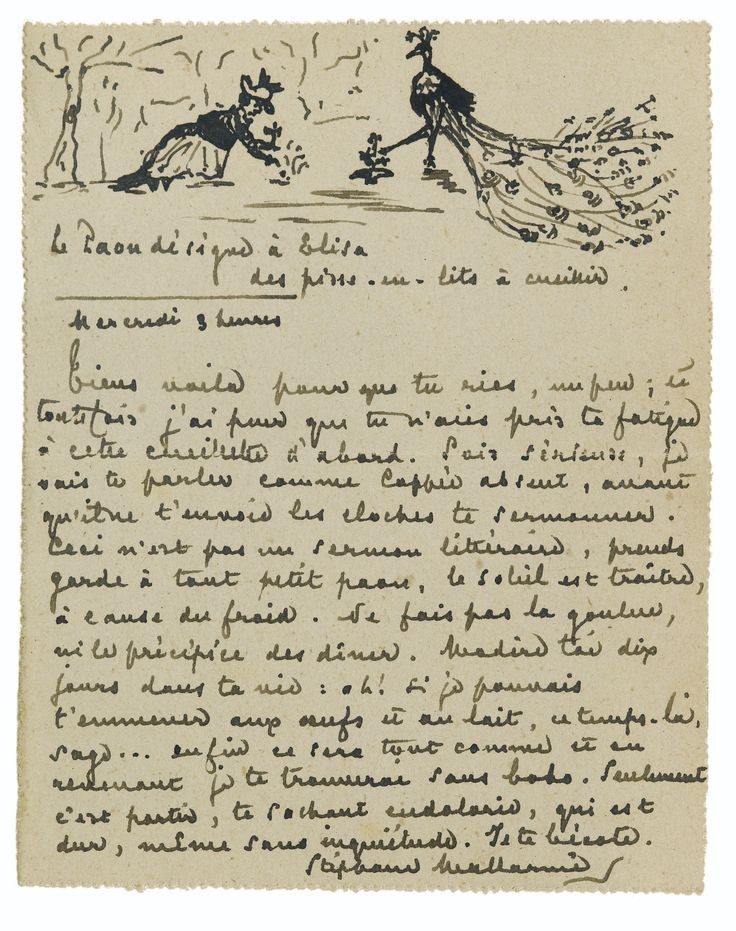 Le Paon désigne à Elisa
des pisse-en-lits à cueillir.
Mercredi 3 heures
Tiens voilà pour que tu ries, un peu; et
toutefois j'ai peur que tu n'aies pris ta fatigue
à cette cueillette d'abord. Sois sérieuse, je
vais te parler comme Coppée absent, avant
qu'il ne t'envoie les cloches te sermonner.
Ceci n'est pas un sermon littéraire, prends
garde à tout petit paon, le soleil est traître,
à cause du froid. Ne fais pas la goulue,
ni le précipice des dîner. Madère
jours dans ta vie : oh! si je pouvais
t'emmener aux œufs et au lait, ce temps-là,
sage... enfin ce sera tout comme et en
revenant je te trouverai sans bobo. Seulement
c'est partir, te sachant endolorie, qui est
dur, même sans inquiétude. Je te bécote.
Stéphane Mallarmé